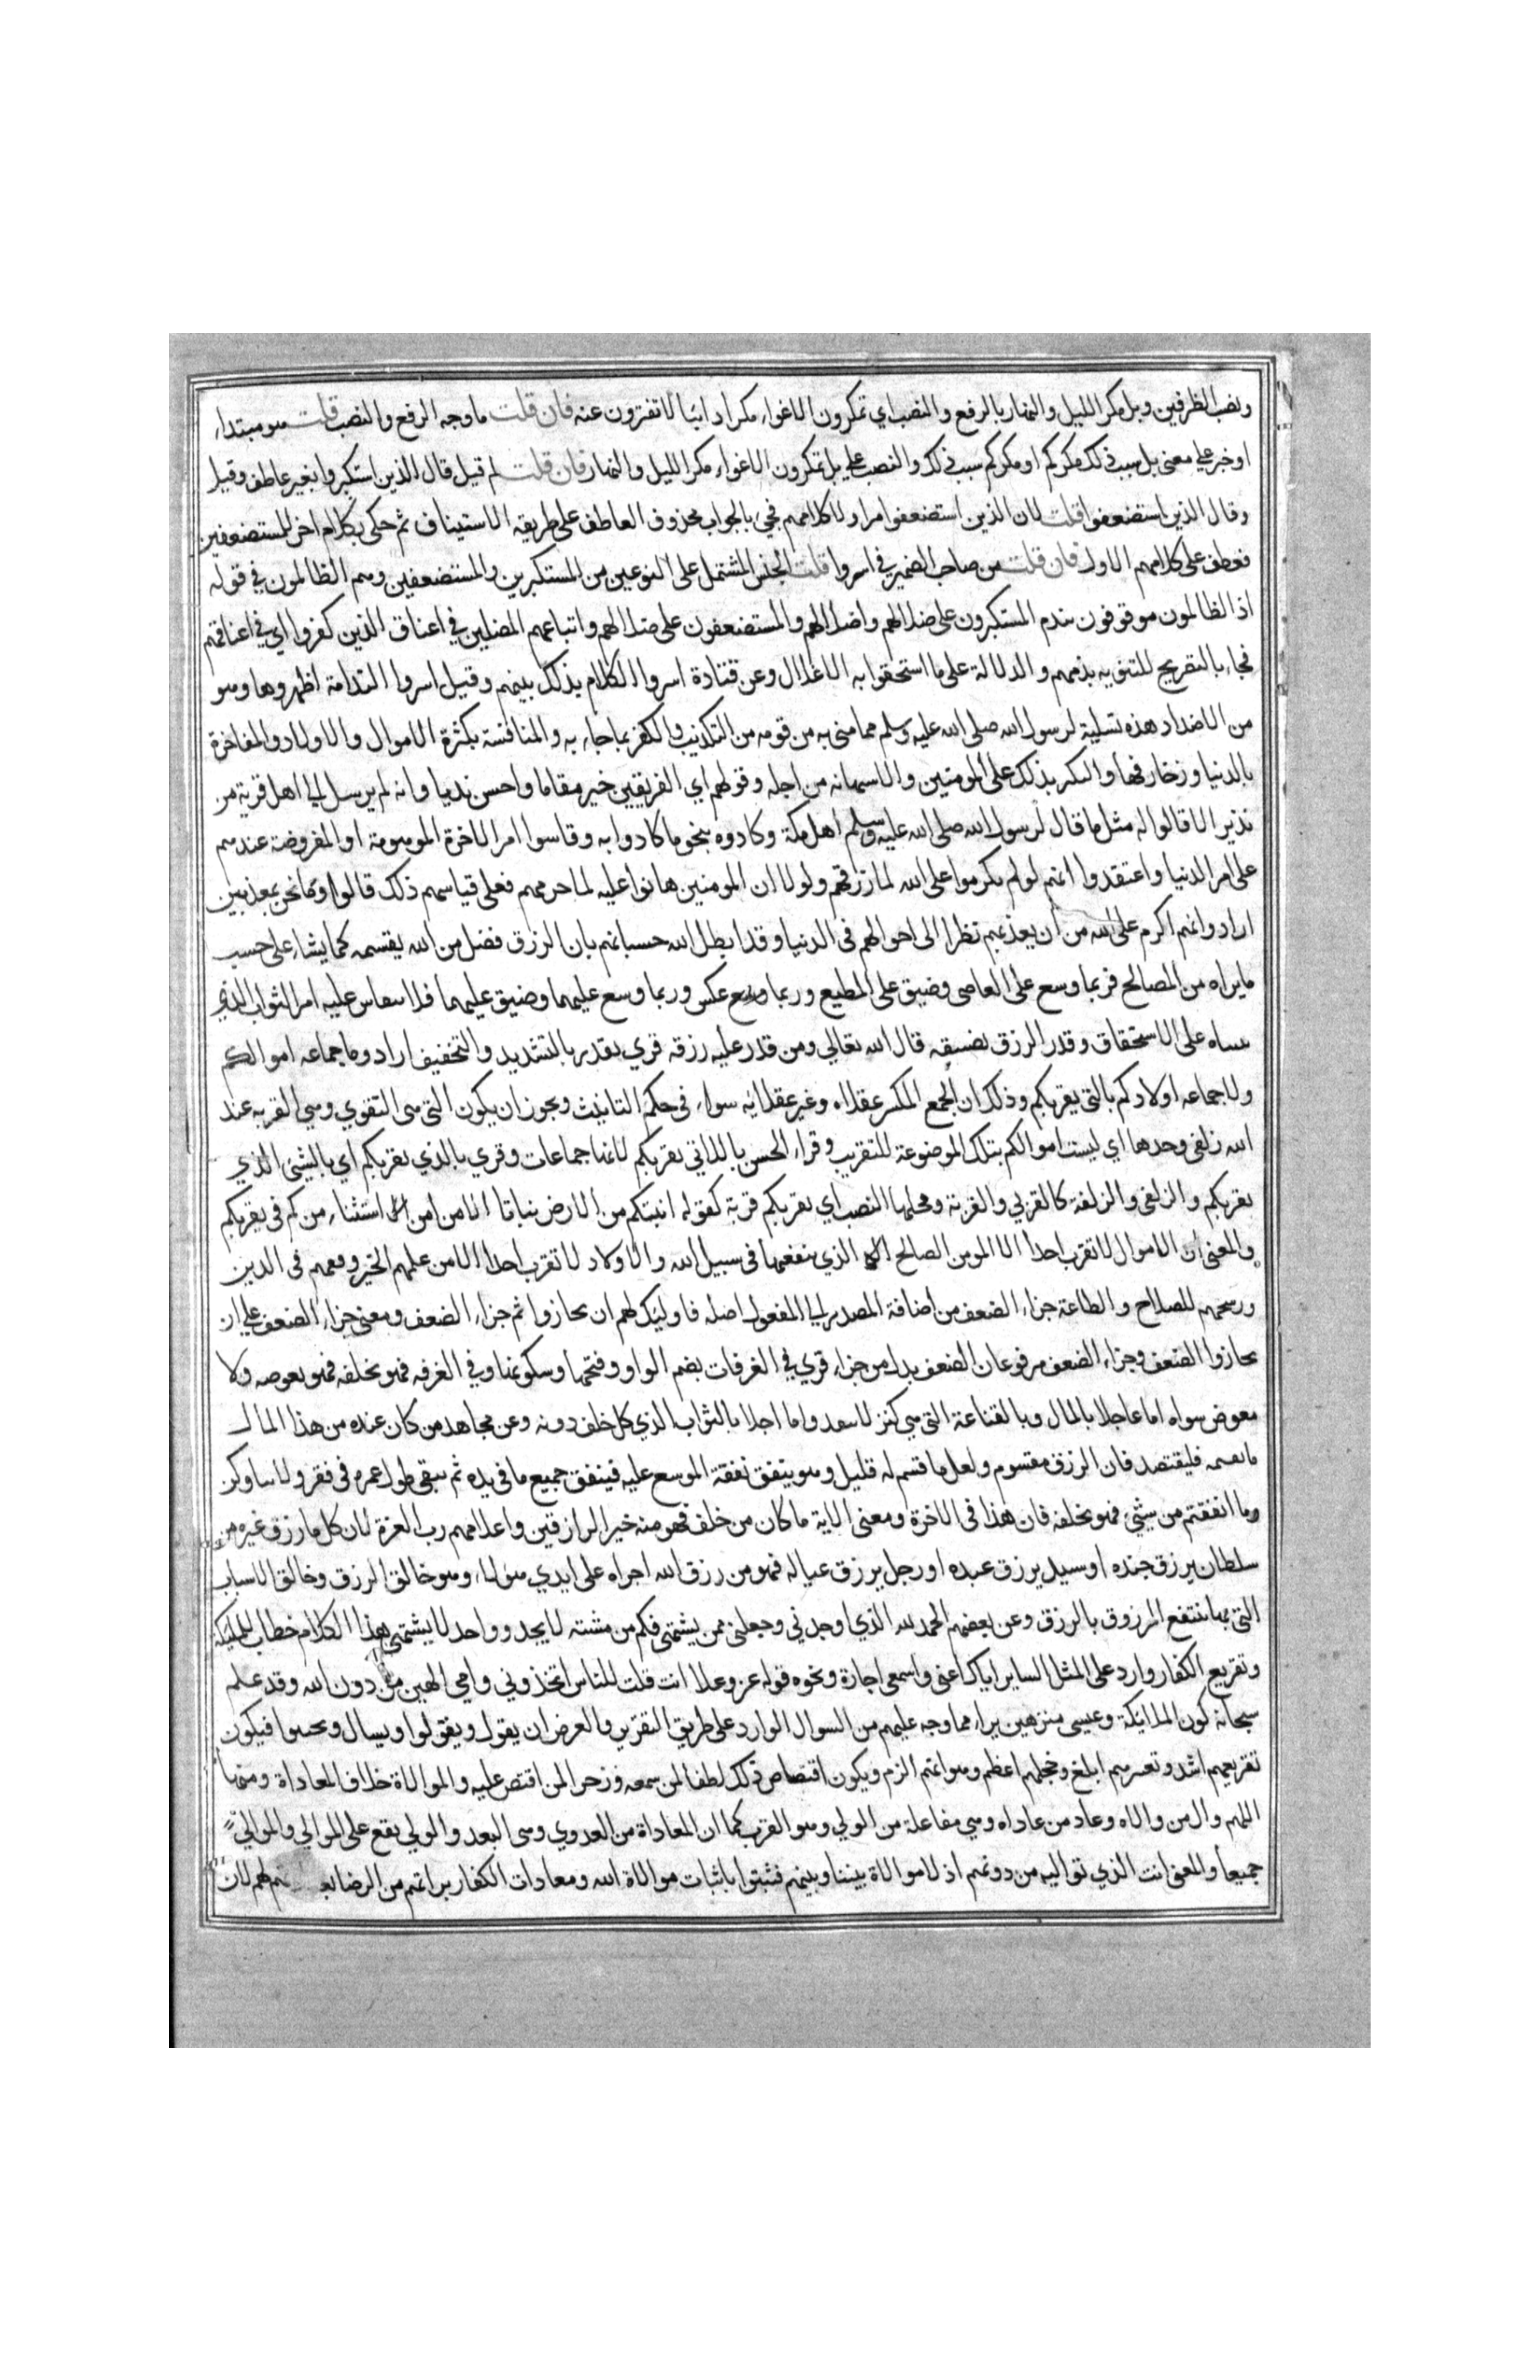 ونصب الظرفين وبل مكر الليل والنهار بالرفع والنصب اي تمكرون الاغواء مكرا دائبا لا تفترون عنه فان قلت ما وجه الرفع والنصب قلت هو مبتداء
او خبر علي معنى بل سبب ذلك مكركم او مكركم سبب ذلك والنصب علي بل تمكرون الاغواء مكر الليل والنهار فان قلت لم قيل قال الذين استكبروا بغير عاطف وقيل
وقال الذين استضعفوا قلت لان الذين استضعفوا مر اولا كلامهم فجئ بالجواب محذوف العاطف على طريقه الاستيناف ثم حكى بكلام اخر للمستضعفين
فعطف على كلامهم الاول فان قلت من صاحب الضمير في اسروا قلت الجنس المشتمل على النوعين من المستكبرين والمستضعفين وهم الظالمون في قوله
اذ الظالمون موقوفون يندم المستكبرون على ضلالهم واضلالهم والمستضعفون على ضلالهم واتباعهم المضلين في اعناق الذين كفروا اي في اعناقهم
فجاء بالتقريح للتنويه بذمهم والدلالة على ما استحقوا به الاغلال وعن قتادة اسروا الكلام بذلك بينهم وقيل اسروا الندامة اظهروها وهو
من الاضداد هذه تسلية لرسول الله صلى الله عليه وسلم مما منى به من قومه من التكذيب والكفر بما جاء به والمنافسة بكثرة الاموال والاولاد والمفاخرة
بالدنيا وزخارفها والتكبر بذلك على المومنين والاستهانه من اجله وقولهم اي الفريقين خير مقاما واحسن نديا وانه لم يرسل الي اهل قرية من
نذير الا قالوا له مثل ما قال لرسول الله صلى الله عليه وسلم اهل مكة وكادوه بنحو ما كادوا به وقاسوا امر الاخرة الموهومة او المفروضة عندهم
على امر الدنيا واعتقدوا انهم لو لم يكرموا على الله لما رزقهم ولولا ان المومنين هانوا عليه لما حرمهم فعلى قياسهم ذلك قالوا وما نحن بمعذبين
ارادوا انهم اكرم على الله من ان يعذبهم نظرا الى احوالهم فى الدنيا وقد ابطل الله حسبانهم بان الرزق فضل من الله يقسمه كما يشاء على حسب
ما يراه من المصالح فربما وسع على العاصى وضيق على المطيع وربما عكس وربما وسع عليهما وضيق عليهما فلا ينقاس عليه امر الثواب الذي
مبناه على الاستحقاق وقدر الرزق تضييقه قال الله تعالي ومن قدر عليه رزقه قري يقدر بالتشديد والتخفيف ارادوما جماعه اموالكم
ولا جماعه اولادكم بالتي يقربكم وذلك ان الجمع المكسر عقلاه وغير عقلايه سواء في حكم التانيث ويجوز ان يكون التى هى التقوي وهي القربه عند
الله زلفى وحدها اي ليست اموالكم بتلك الموضوعة للتقريب وقراء الحسن باللاتي يقربكم لانها جماعات وقري بالذي يقربكم اي بالشئ الذي
يقربكم والزلفى والزلفة كالقربي والقربة ومحلها النصب اي يقربكم قربة كقوله انبتكم من الارض نباتا الا من امن استثناء من كم في يقربكم
والمعنى ان الاموال لا تقرب احدا الا المومن الصالح الذي ينفقها في سبيل الله والاولاد لا تقرب احدا الا من علمهم الخير وفقههم في الدين
ورسحهم للصلاح والطاعة جزاء الضعف من اضافة المصدر الي المفعول اصله فاوليك لهم ان يجازوا ثم جزاء الضعف ومعنى جزاء الضعف علي ان
يجازوا الضعف وجزاء الضعف مرفوعان الضعف بدل من جزاء قري في الغرفات بضم الواو وفتحها وسكونها وفي الغرفه فهو يخلفه فهو يعوضه ولا
معوض سواه اما عاجلا بالمال وبالقناعة التى هي كنز لا ينفد واما اجلا بالثواب الذي كل خلف دونه وعن مجاهد من كان عنده من هذا المال
ما يقيمه فليقتصد فان الرزق مقسوم ولعل ما قسم له قليل وهو ينفق نفقة الموسع عليه فينفق جميع ما في يده ثم يبقى طول عمره في فقر ولا يتاولن
وما انفقتم من شيئ فهو يخلفه فان هذا في الاخرة ومعنى الاية ما كان من خلف فهو منه خير الرازقين واعلامهم رب العزة لان كل ما رزق غيره من
سلطان يرزق جنده او سيد يرزق عبده او رجل يرزق عياله فهو من رزق الله اجراه على ايدي هولاء وهو خالق الرزق وخالق الاسباب
التى بها ينتفع المرزوق بالرزق وعن بعضهم الحمد لله الذي اوجدني وجعلني ممن يشتهي فكم من مشته لا يجد وواجد لا يشتهي هذا الكلام خطاب للمليكة
وتقريع الكفار وارد على المثل الساير اياك اعنى واسمعى اجارة ونحوه قوله عز وعلا انت قلت للناس اتخذوني وامي الهين من دون الله وقد علم
سبحانه كون الملائكة وعيسى منزهين براء مما وجه عليهم من السوال الوارد على طريق التقرير والغرض ان يقول ويقولوا ويسال ويجيبوا فيكون
تقريعهم اشد وتعييرهم ابلغ وخجلهم اعظم وهوانهم الزم ويكون اقتصاص ذلك لطفا لمن سمعه وزجرا لمن اقتص عليه والموالاة خلاف المعاداة ومنها
اللهم وال من والاه وعاد من عاداه وهي مفاعلة من الولي وهو القرب كما ان المعاداة من العدوي وهى البعد والولي يقع على الموالي والموالي
جميعا والمعنى انت الذي تواليه من دونهم اذ لا موالاة بيننا وبينهم فثبتوا باثبات موالاة الله ومعادات الكفار براتهم من الرضا لهم لان